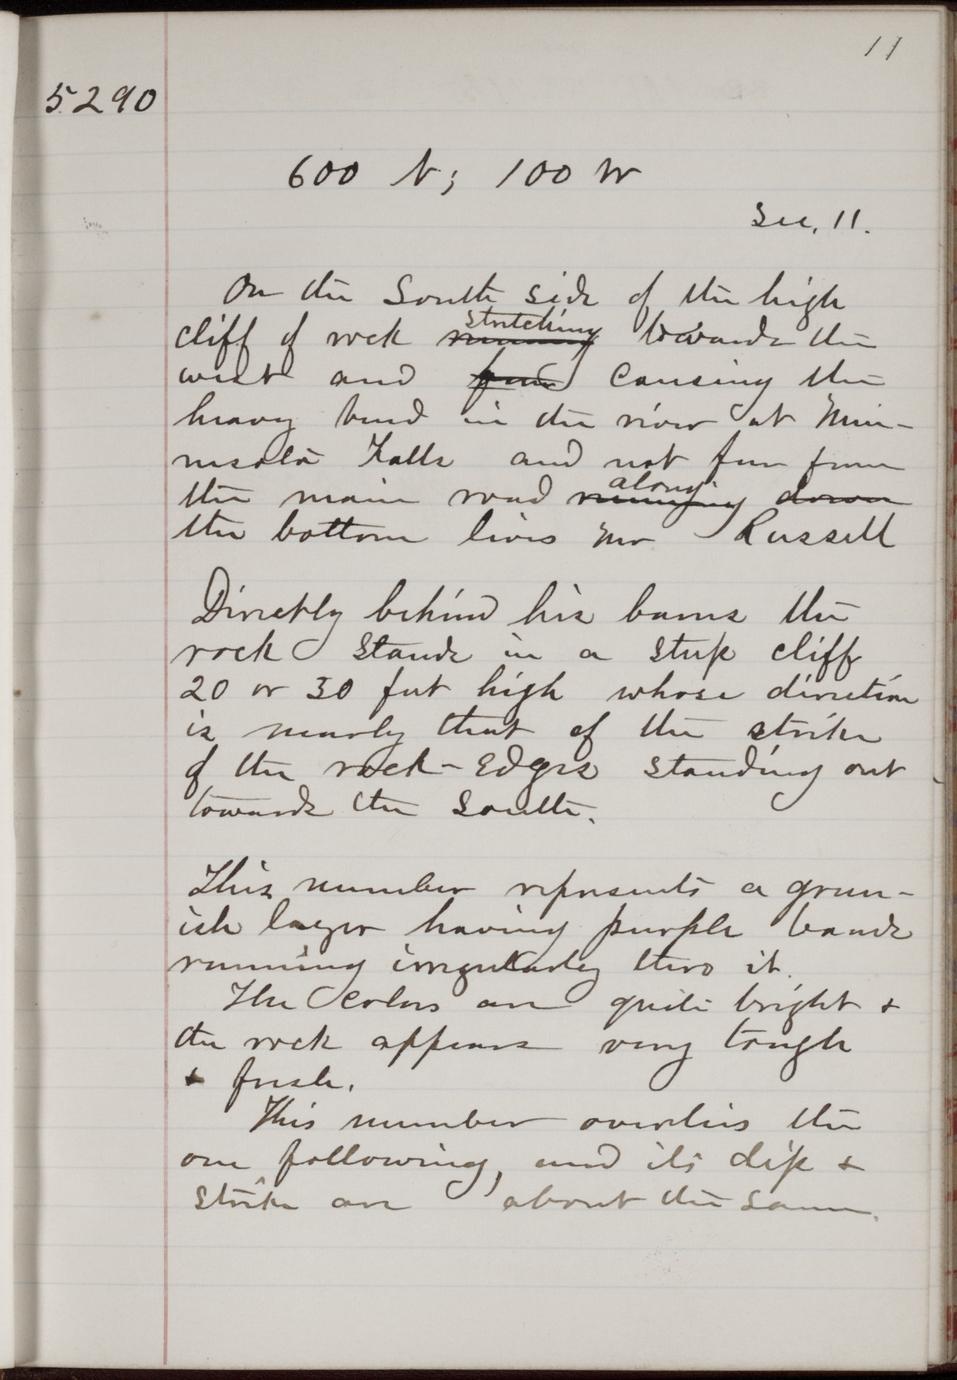 11
5290
600 N; 100 W
Sec. 11.
On the South side of the high
cliff of rock running stretching towards the
west and causing the
heavy bend in the river at Min-
nesota Falls and not far from
the main road running along down
the bottom lives Mr Russell
Directly behind his barns the
rock stands in a steep cliff
20 or 30 feet high whose direction
is nearly that of the strike
of the rock - Edges standing out
towards the South.
This number represents a green-
ish layer having purple bands
running irregularly thro it.
The colors are quite bright +
the rock appears very tough
+ fresh.
This number overlies the
one following, and its dip +
strike are about the same.